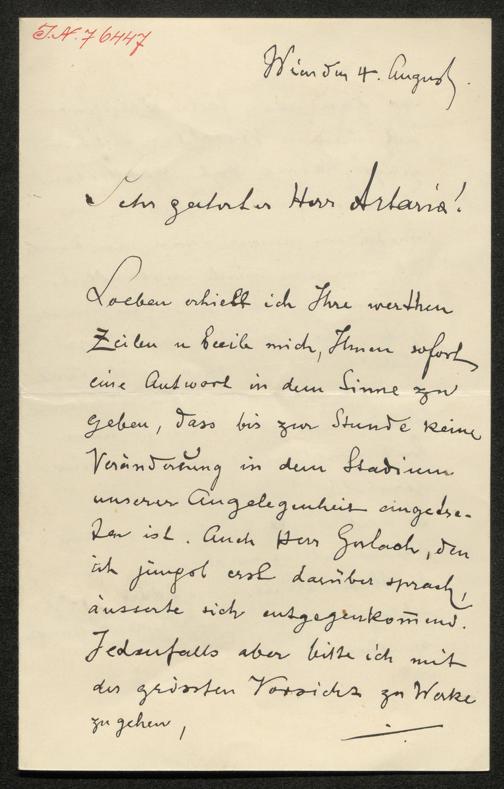 J.N. 76447
Wien den 4. August.
Sehr geehrter Herr Artaria!
Soeben erhielt ich Ihre werthen
Zeilen u beeile mich, Ihnen sofort
eine Antwort in dem Sinne zu
geben, dass bis zur Stunde keine
Veränderung in dem Stadium
unserer Angelegenheit eingetre-
ten ist. Auch Herr Gerlach, den
ich jüngst erst darüber sprach,
äusserte sich entgegenkom̅end.
Jedenfalls aber bitte ich mit
der grössten Vorsicht zu Werke
zu gehen,